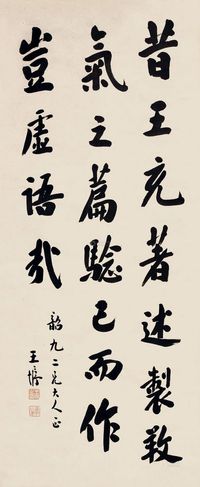 昔王充著述製
氣之篇驗己而作
豈虛語哉
韶九二兄大人正
王垿